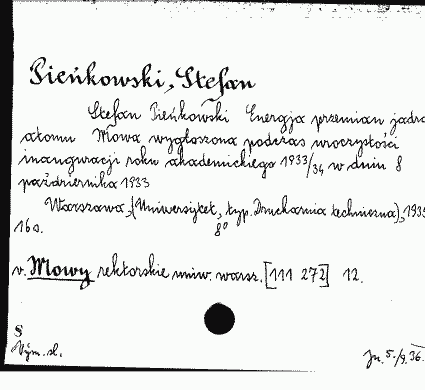 Pieńkowski, Stefan
Stefan Pieńkowski Energja przemian jądra
atomu Mowa wygłoszona podczas uroczystości
inauguracji roku akademickiego 1933/34 w dniu 8
października 1933
Warszawa, (Uniwersytet, typ. Drukarnia techniczna), 1935
16 s. 8°
v. Mowy rektorskie uniw. warsz. [111 272] 12.
S
Wym. sl.
5./9.36.